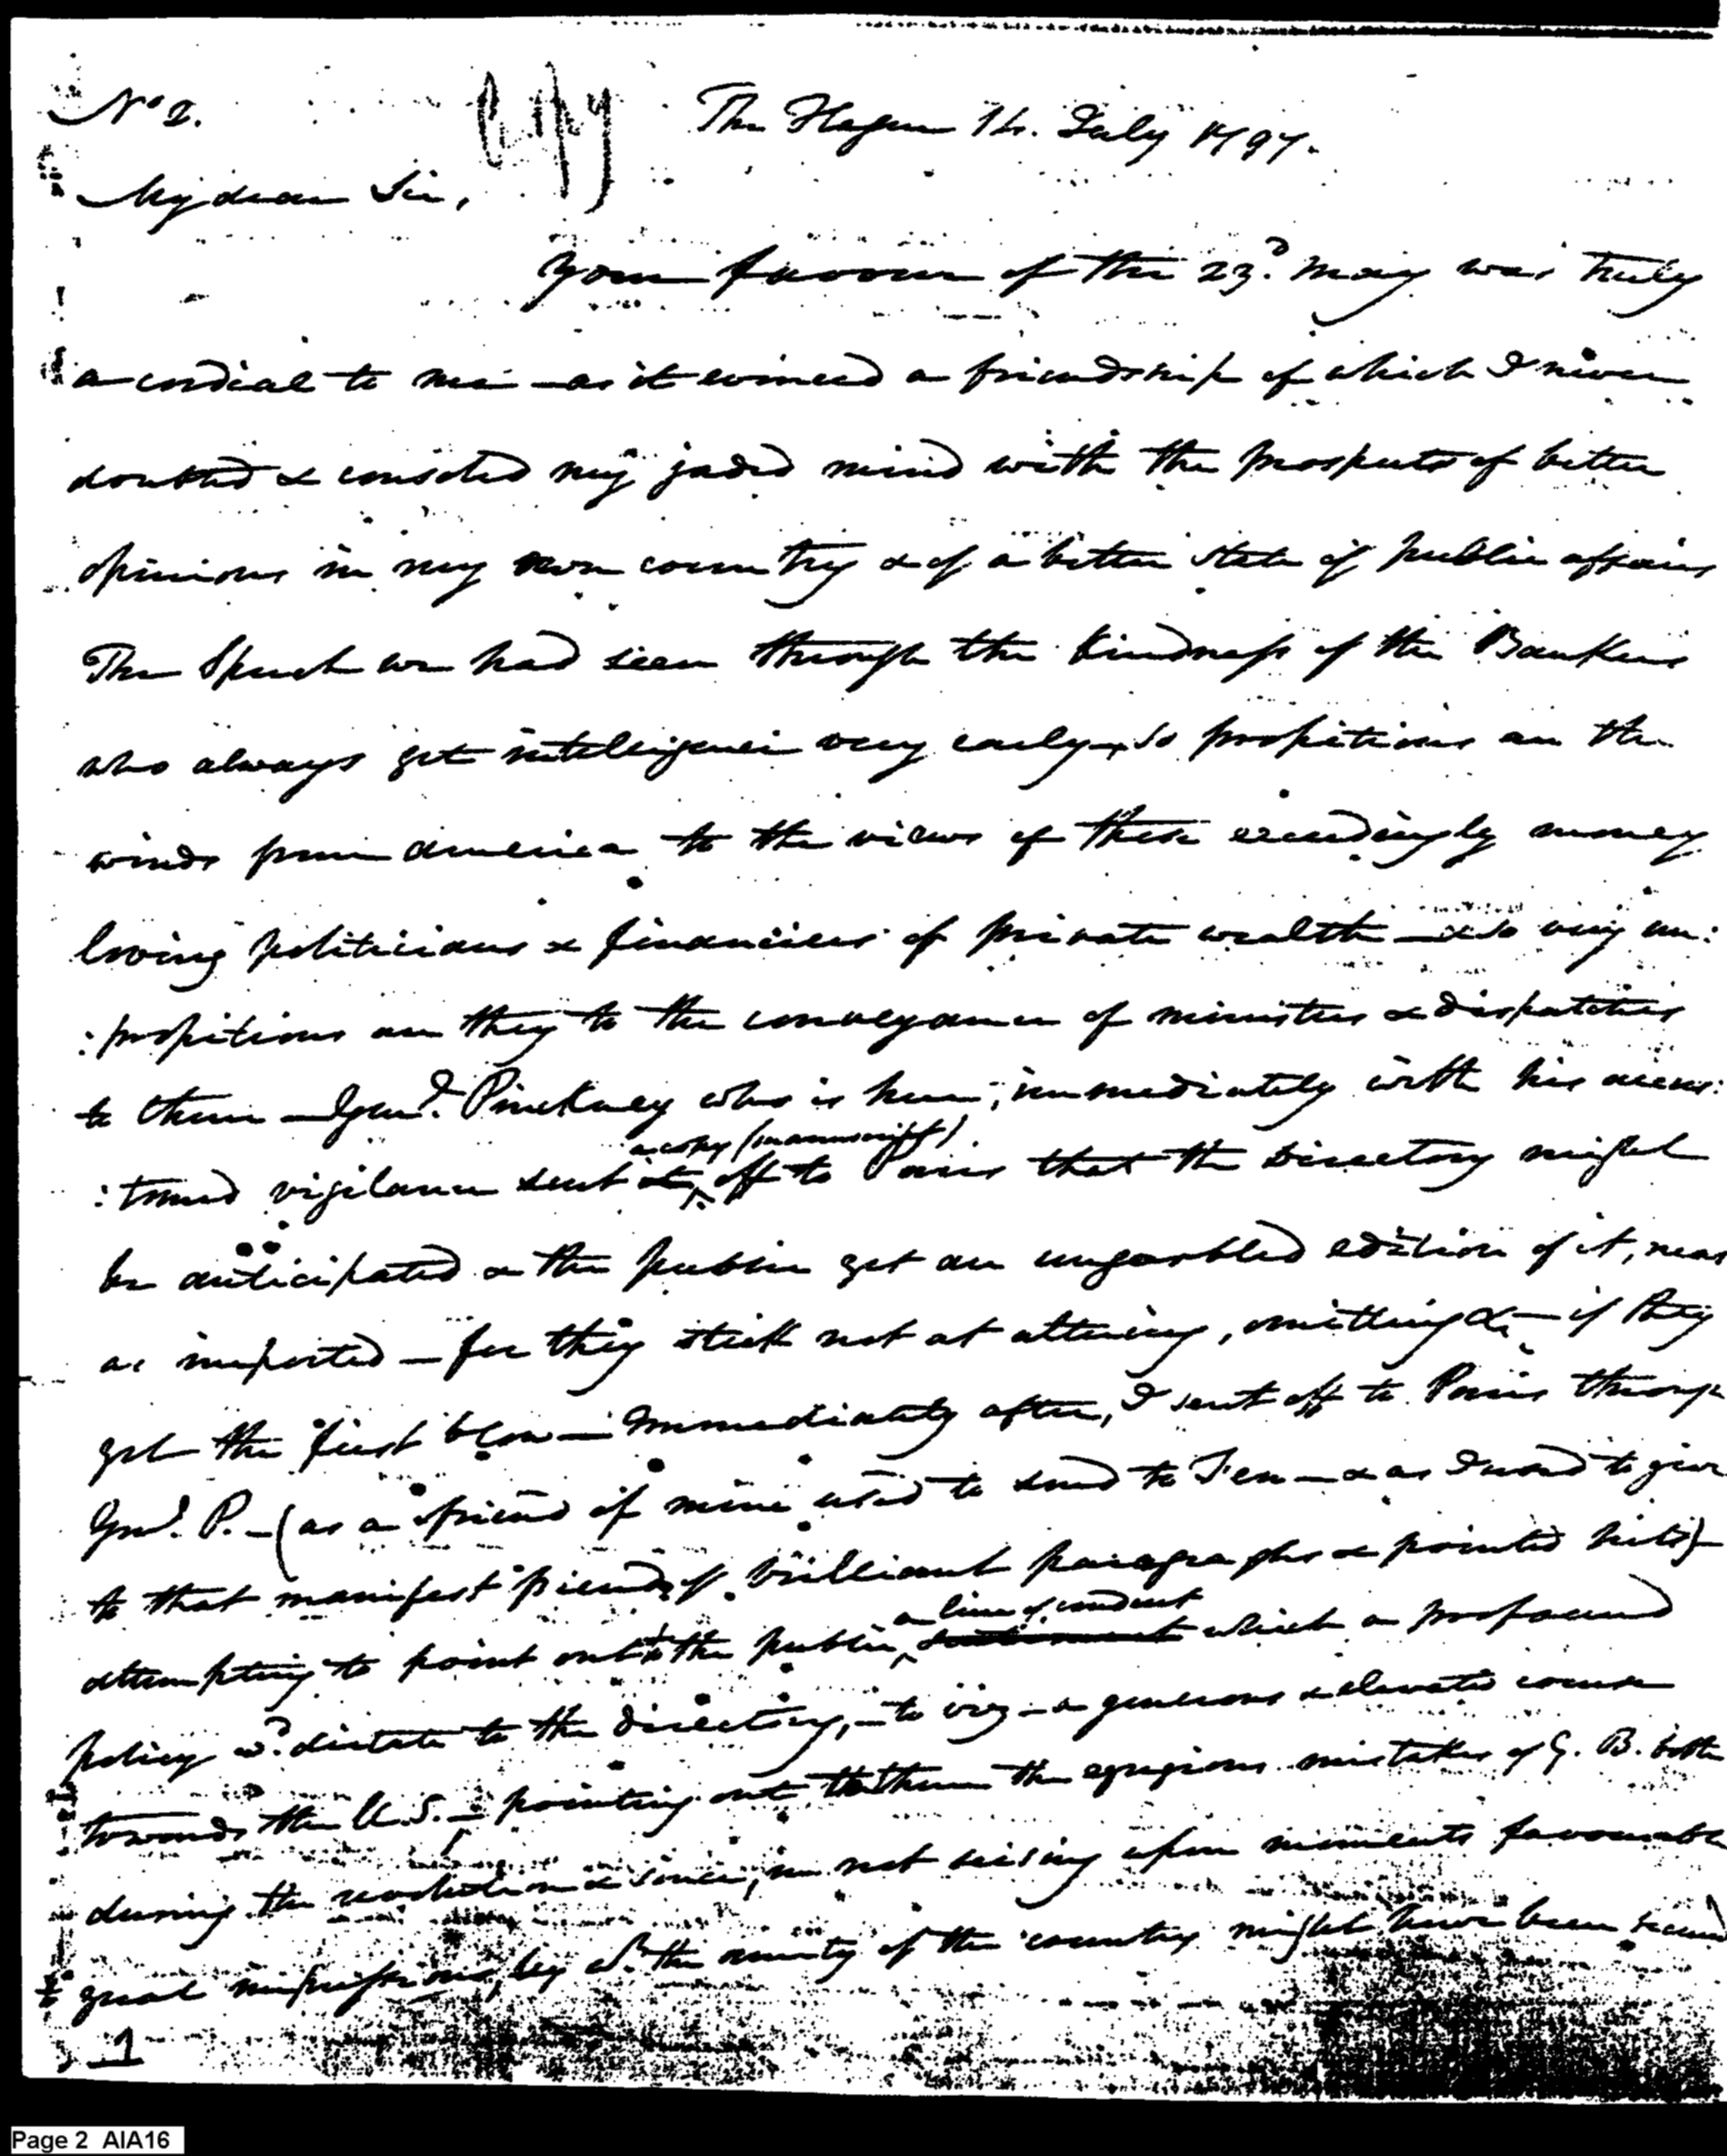 No 2. Copy The Hague 14. July 1797.
My dear Sir,
Your favour of the 23d. May was truly
a cordial to me — as it evinced a friendship of which I never
doubted & consoled my jaded mind with the prospects of better
opinions in my own country & of a better state of public affairs
The Speech we had seen through the kindness of the Bankers
who always get intelligence very early, so propitious are the
winds from America to the views of these exceedingly money
loving politicians & financiers of private wealth — & so very un:
:propitious are they to the conveyance of ministers & dispatches
to them — Genl. Pinckney who is here, immediately with his accus:
a copy (manuscript)
:tomed vigilance sent it off to Paris that the Directory might
be anticipated & the public get an ungarbled edition of it, near
as imported — for they stick not at altering, omitting &c — if they
get the first blow — Immediately after, I sent off to Paris through
Genl. P. — (as a friend of mine used to send to Fen — & as I used to give
to that manifest friend of brilliant paragraphs & pointed hits) —
a line of conduct
attempting to point out to the public, which a profound
policy wd. dictate to the directory, — to viz — a generous & elevated course
towards the U.S. — pointing out to them the egregious mistakes of G. B. both
during the revolution & since, in not seising upon moments favourable
to great impressions, by wh. the amity of the country might have been
1
Page 2 AIA16